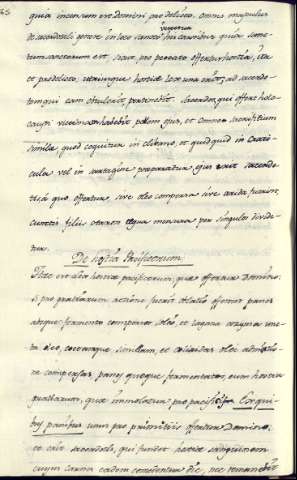 quia incensum est domini pro delicto. Omnis masculus
de sacerdotali genere in loco sancto vescetur his carnibus quia sanc-
tum sanctorum est. sicut pro peccato offertur hostia, ita
et pro delicto, utriusque hostiæ lex una erit, ad sacerdo-
tem qui eam obtulerit, pertinebit. sacerdos qui offert holo-
causti victimam habebit pellem ejus, et omne sacrificium
similæ quod coquitur in clibano, et quidquid in crati-
cula vel in sartagine præparatur, ejus erit sacerdo-
tis a quo offertur, sive oleo conspersa sive arida fuerint,
cunctis filiis Aaron æqua mensura per singulos divide-
tur.
De hostia Pacificorum
Hæc est lex hostiæ pacificorum, quæ offertur Domino.
si pro gratiarum actione fuerit oblatio offerent panes
absque fermento conspersos oleo, et lagana azyma unc-
ta oleo, coctamque similam, et collyridas olei admixtio-
ne conspersas, panes quoque fermentatos, cum hostia
gratiarum, quæ immolatur pro pacificis, Ex qui-
bus panibus unus pro primitiis offertur Domino,
et erit sacerdotis, qui fundet hostiæ sanguinem
cujus carnes eadem comedentur die, nec remanebit